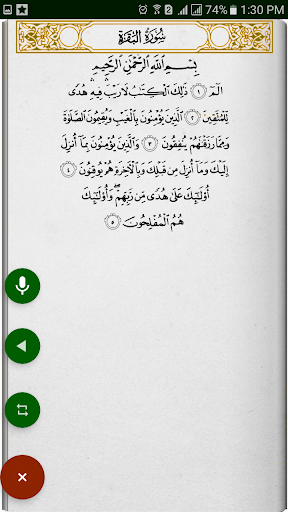 74% 1:30 PM
سُورَةُ البَقَرَةِ
بِسْمِ ٱللَّهِ ٱلرَّحْمَٰنِ ٱلرَّحِيمِ
الٓمٓ ١ ذَٰلِكَ ٱلْكِتَٰبُ لَا رَيْبَ ۛ فِيهِ ۛ هُدًى
لِّلْمُتَّقِينَ ٢ ٱلَّذِينَ يُؤْمِنُونَ بِٱلْغَيْبِ وَيُقِيمُونَ ٱلصَّلَوٰةَ
وَمِمَّا رَزَقْنَٰهُمْ يُنفِقُونَ ٣ وَٱلَّذِينَ يُؤْمِنُونَ بِمَآ أُنزِلَ
إِلَيْكَ وَمَآ أُنزِلَ مِن قَبْلِكَ وَبِٱلْءَاخِرَةِ هُمْ يُوقِنُونَ ٤
أُو۟لَٰٓئِكَ عَلَىٰ هُدًى مِّن رَّبِّهِمْ ۖ وَأُو۟لَٰٓئِكَ
هُمُ ٱلْمُفْلِحُونَ ٥